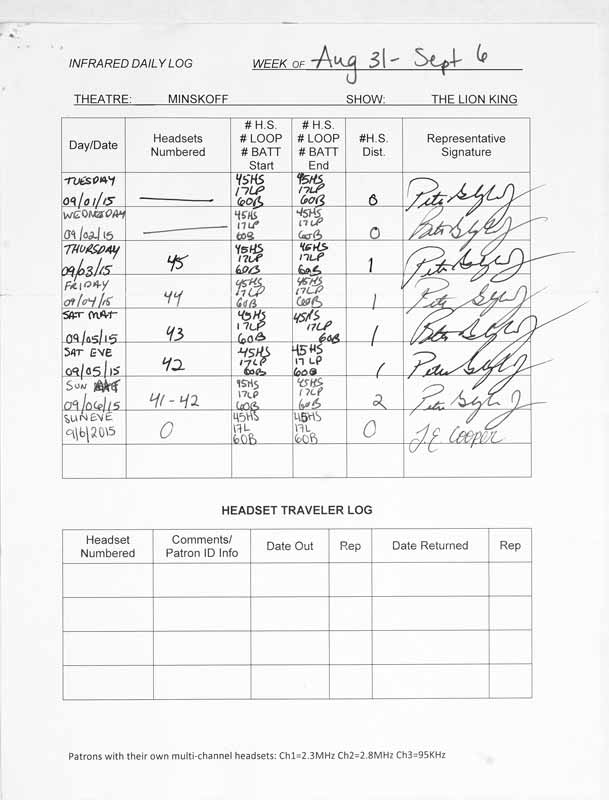 INFRARED DAILY LOG WEEK OF Aug 31 - Sept 6
THEATRE: MINSKOFF SHOW: THE LION KING
Day/Date Headsets Numbered # H.S. # LOOP # BATT Start # H.S. # LOOP # BATT End #H.S. Dist. Representative Signature
TUESDAY 09/01/15 45HS 17LP 60B 45HS 17LP 60B 0
WEDNESDAY 09/02/15 45HS 17LP 60B 45HS 17LP 60B 0
THURSDAY 09/03/15 45 45HS 17LP 60B 45HS 17LP 60B 1
FRIDAY 09/04/15 44 45HS 17LP 60B 45HS 17LP 60B 1
SAT MAT 09/05/15 43 45HS 17LP 60B 45HS 17LP 60B 1
SAT EVE 09/05/15 42 45HS 17LP 60B 45HS 17LP 60B 1
SUN 09/06/15 41-42 45HS 17LP 60B 45HS 17LP 60B 2
SUN EVE 9/6/2015 0 45HS 17L 60B 45HS 17L 60B 0 J.E. Cooper
HEADSET TRAVELER LOG
Headset Numbered Comments/ Patron ID Info Date Out Rep Date Returned Rep
Patrons with their own multi-channel headsets: Ch1=2.3MHz Ch2=2.8MHz Ch3=95KHz